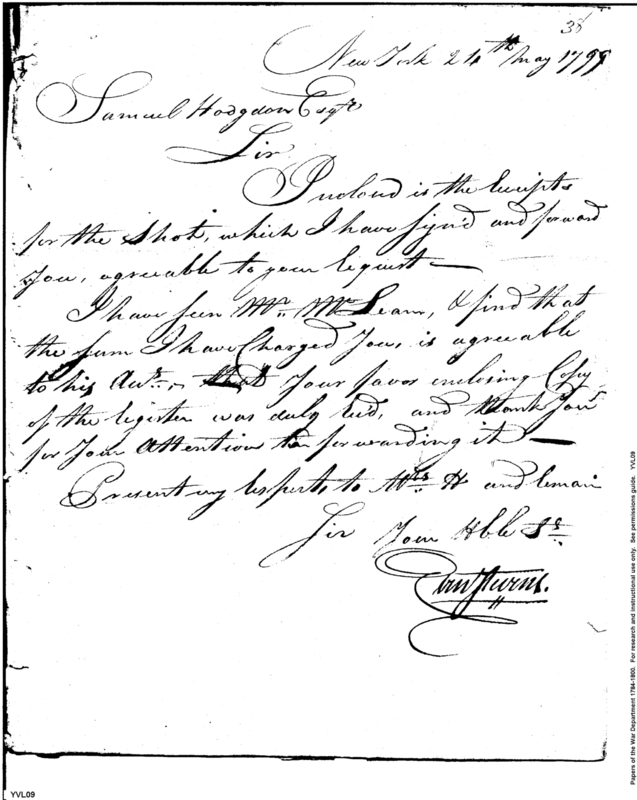 38
New York 24th May 1799
Samuel Hodgdon Esqr
Sir
Inclosd is the Receipts
for the Shot, which I have Sign'd and forward
You, agreeable to your request —
I have seen Mr. McLean, & find that
the sum I have Charged You, is agreeable
to his Your favor enclosing Copy
of the register was duly Recd, and thank You
for Your Attention in forwarding it —
Present my Respects to Mrs. H and remain
Sir Your Hble St.
Stevens.
Papers of the War Department 1784-1800. For research and instructional use only. See permissions guide. YVL09
YVL09